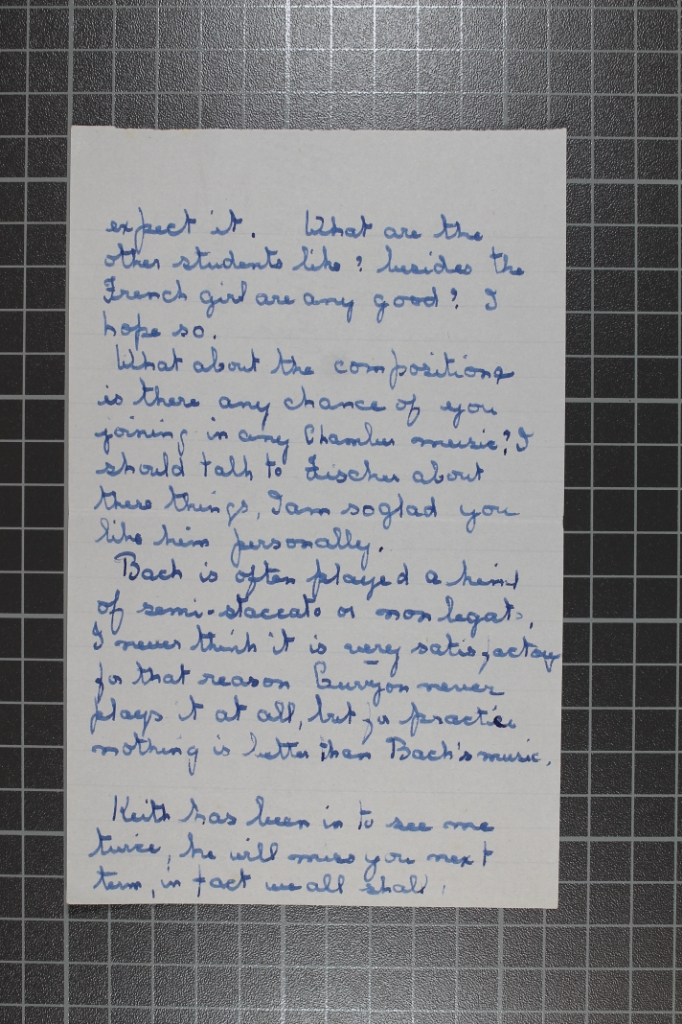 expect it. What are the
other students like? besides the
French girl are any good? I
hope so.
What about the compositions
is there any chance of you
joining in any Chamber music? I
should talk to Fischer about
these things, I am so glad you
like him personally.
Bach is often played a kind
of semi-staccato or non legato,
I never think it is very satisfactory
for that reason Curzon never
plays it at all, but for practice
nothing is better than Bach's music.
Keith has been in to see me
twice, he will miss you next
term, in fact we all shall!